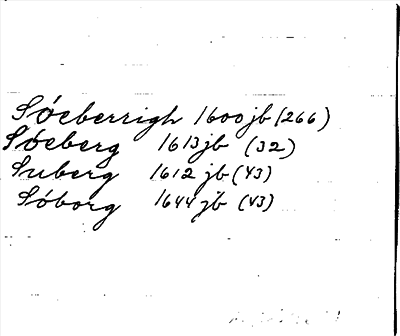 Sóeberrigh 1600 jb (266)
Sóeberg 1613 jb (32)
Suberg 1612 jb (43)
Sóborg 1644 jb (43)